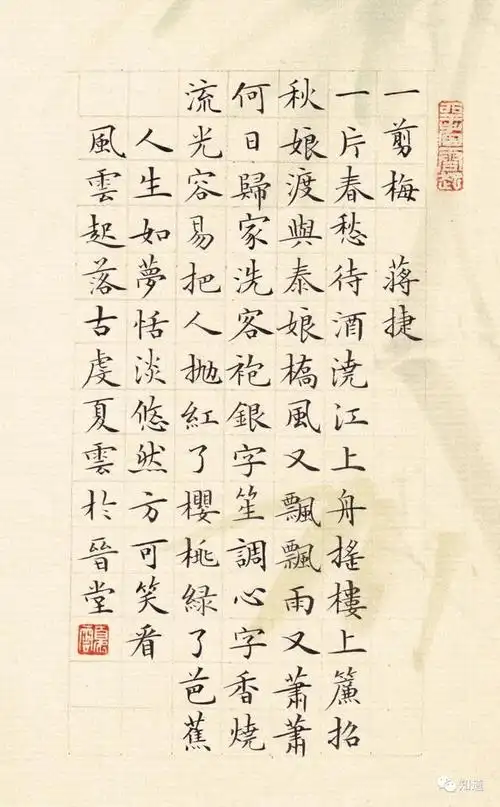 一剪梅 蔣捷
一片春愁待酒浇江上舟搖樓上簾招
秋娘渡與泰娘橋風又飄飄雨又蕭蕭
何日歸家洗客袍銀字笙調心字香燒
流光容易把人抛紅了櫻桃綠了芭蕉
人生如夢恬淡悠然方可笑看
風雲起落古虔夏雲於晉堂
夏雲
知道